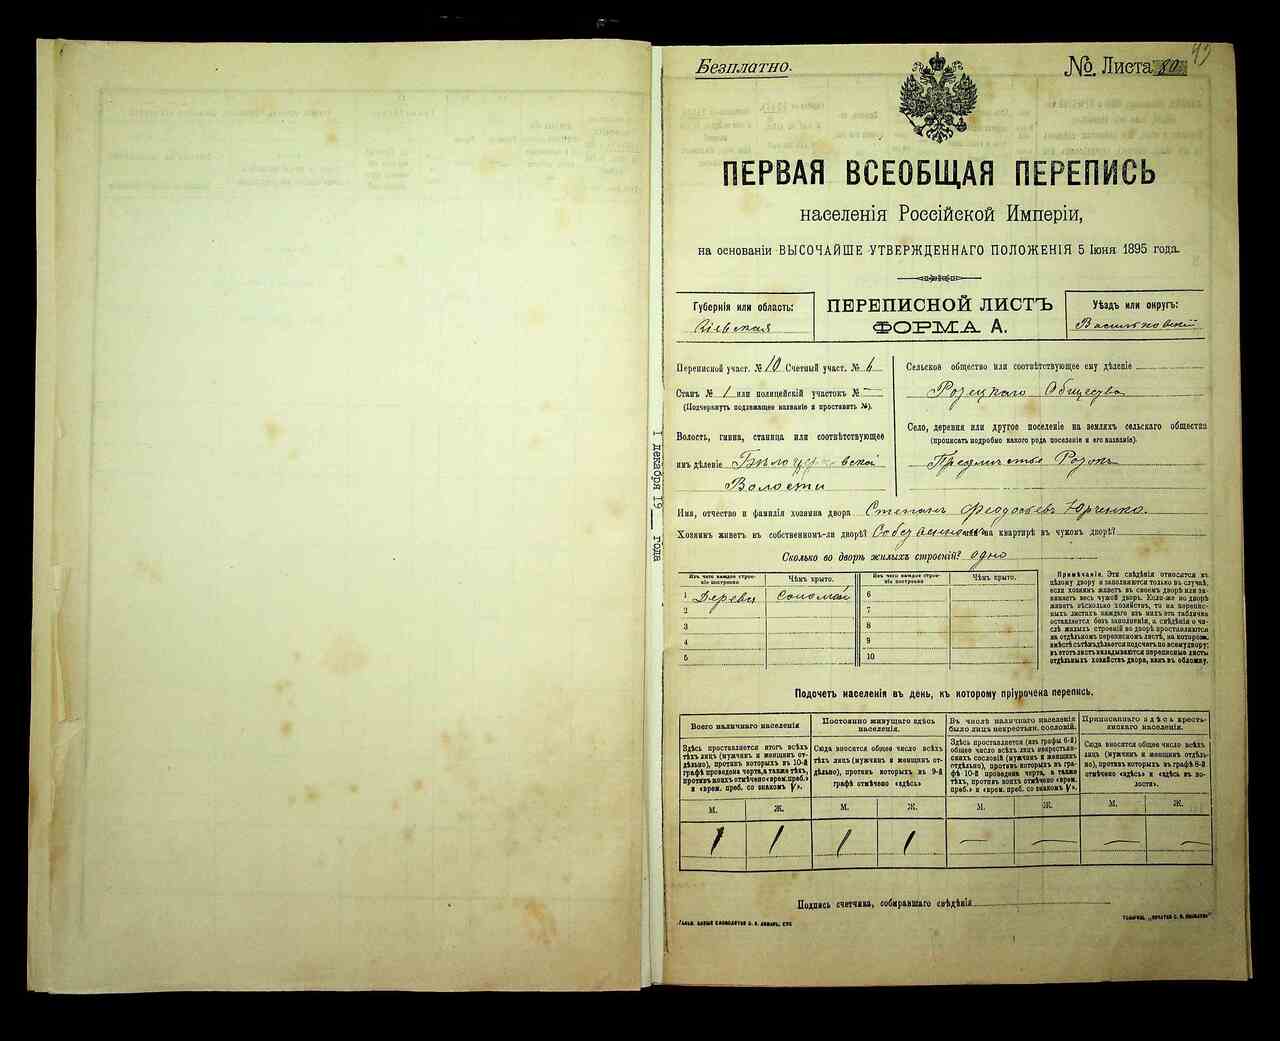 Безплатно.
№ Листа 80
43
ПЕРВАЯ ВСЕОБЩАЯ ПЕРЕПИСЬ
населенія Россійской Имперіи,
на основаніи ВЫСОЧАЙШЕ УТВЕРЖДЕННАГО ПОЛОЖЕНІЯ 5 Іюня 1895 года.
Губернія или область:
Кіевская
ПЕРЕПИСНОЙ ЛИСТЪ
ФОРМА А.
Уѣздъ или округъ:
Васильковскій
Переписной участ. № 10 Счетный участ. № 6
Станъ № 1 или полицейскій участокъ № —
(Подчеркнуть подлежащее названіе и проставить №).
Волость, гмина, станица или соотвѣтствующее
имъ дѣленіе Бѣлоцерковской
Волости
Сельское общество или соотвѣтствующее ему дѣленіе
Розецкаго Общества
Село, деревня или другое поселеніе на земляхъ сельскаго общества
(прописать подробно какого рода поселеніе и его названіе).
Предмѣстье Розокъ
Имя, отчество и фамилія хозяина двора Степанъ Феодосьевъ Юрченко.
Хозяинъ живетъ въ собственномъ-ли дворѣ? Собственномъ или на квартирѣ въ чужомъ дворѣ?
Сколько во дворѣ жилыхъ строеній? одно
Изъ чего каждое строе-
ніе построено
Чѣмъ крыто.
Изъ чего каждое строе-
ніе построено
Чѣмъ крыто.
1 Дерева Соломой 6
2 7
3 8
4 9
5 10
Примѣчаніе. Эти свѣдѣнія относятся къ
цѣлому двору и заполняются только въ случаѣ,
если хозяинъ живетъ въ своемъ дворѣ или за-
нимаетъ весь чужой дворъ. Если-же во дворѣ
живетъ нѣсколько хозяйствъ, то на перепис-
ныхъ листахъ каждаго изъ нихъ эта табличка
оставляется безъ заполненія, а свѣдѣнія о чи-
слѣ жилыхъ строеній во дворѣ проставляются
на отдѣльномъ переписномъ листѣ, на которомъ
вмѣстѣ съ тѣмъ дѣлается подсчетъ по всему двору;
въ этотъ листъ вкладываются переписные листы
отдѣльныхъ хозяйствъ двора, какъ въ обложку.
1 декабря 19 года
Подсчетъ населенія въ день, къ которому пріурочена перепись.
Всего наличнаго населенія
Здѣсь проставляется итогъ всѣхъ
лицъ (мужчинъ и женщинъ от-
дѣльно), противъ которыхъ въ 10-й
графѣ проведена черта, а также тѣхъ,
противъ коихъ отмѣчено «врем. преб.»
и «врем. преб. со знакомъ V».
Постоянно живущаго здѣсь
населенія.
Сюда вносится общее число всѣхъ
тѣхъ лицъ (мужчинъ и женщинъ от-
дѣльно), противъ которыхъ въ 9-й
графѣ отмѣчено «здѣсь»
Въ числѣ наличнаго населенія
было лицъ некрестьян. сословій.
Здѣсь проставляется (изъ графы 6-й)
общее число всѣхъ лицъ некрестьян-
скихъ сословій (мужчинъ и женщинъ
отдѣльно), противъ которыхъ въ гра-
фѣ 10-й проведена черта, а также
тѣхъ, противъ коихъ отмѣчено «врем.
преб.» и «врем. преб. со знакомъ V».
Приписаннаго здѣсь кресть-
янскаго населенія.
Сюда вносится общее число всѣхъ
лицъ (мужчинъ и женщинъ отдѣль-
но), противъ которыхъ въ графѣ 8-й
отмѣчено «здѣсь» и «здѣсь въ во-
лости».
М. Ж. М. Ж. М. Ж. М. Ж.
1 1 1 1 — — — —
Подпись счетчика, собиравшаго свѣдѣнія